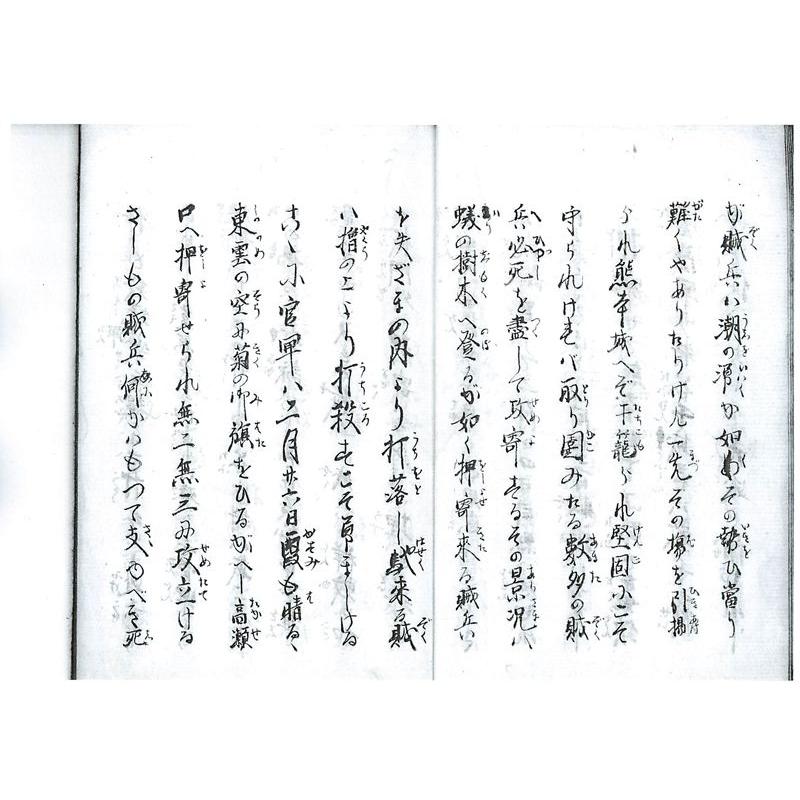 が賊兵ハ潮の湧か如くその勢ひ當り
難くやありたりけん一先その場を引揚
られ熊本城へぞ干籠られ堅固にこそ
守られけれバ取り圍みたる數多の賊
兵必死を盡して攻寄するその景況ハ
蟻の樹木へ登るが如く押寄来る賊兵ハ
を失ざまの内より打落し馳来る賊
ハ櫓の上より打殺すこそ勇ましける
小官軍ハ二月廿六日霞も晴るゝ
東雲の空に菊の御旗をひるがへし高瀬
口へ押寄せられ無二無三に攻立ける
さしもの賊兵何かハもつて支ゆべき死